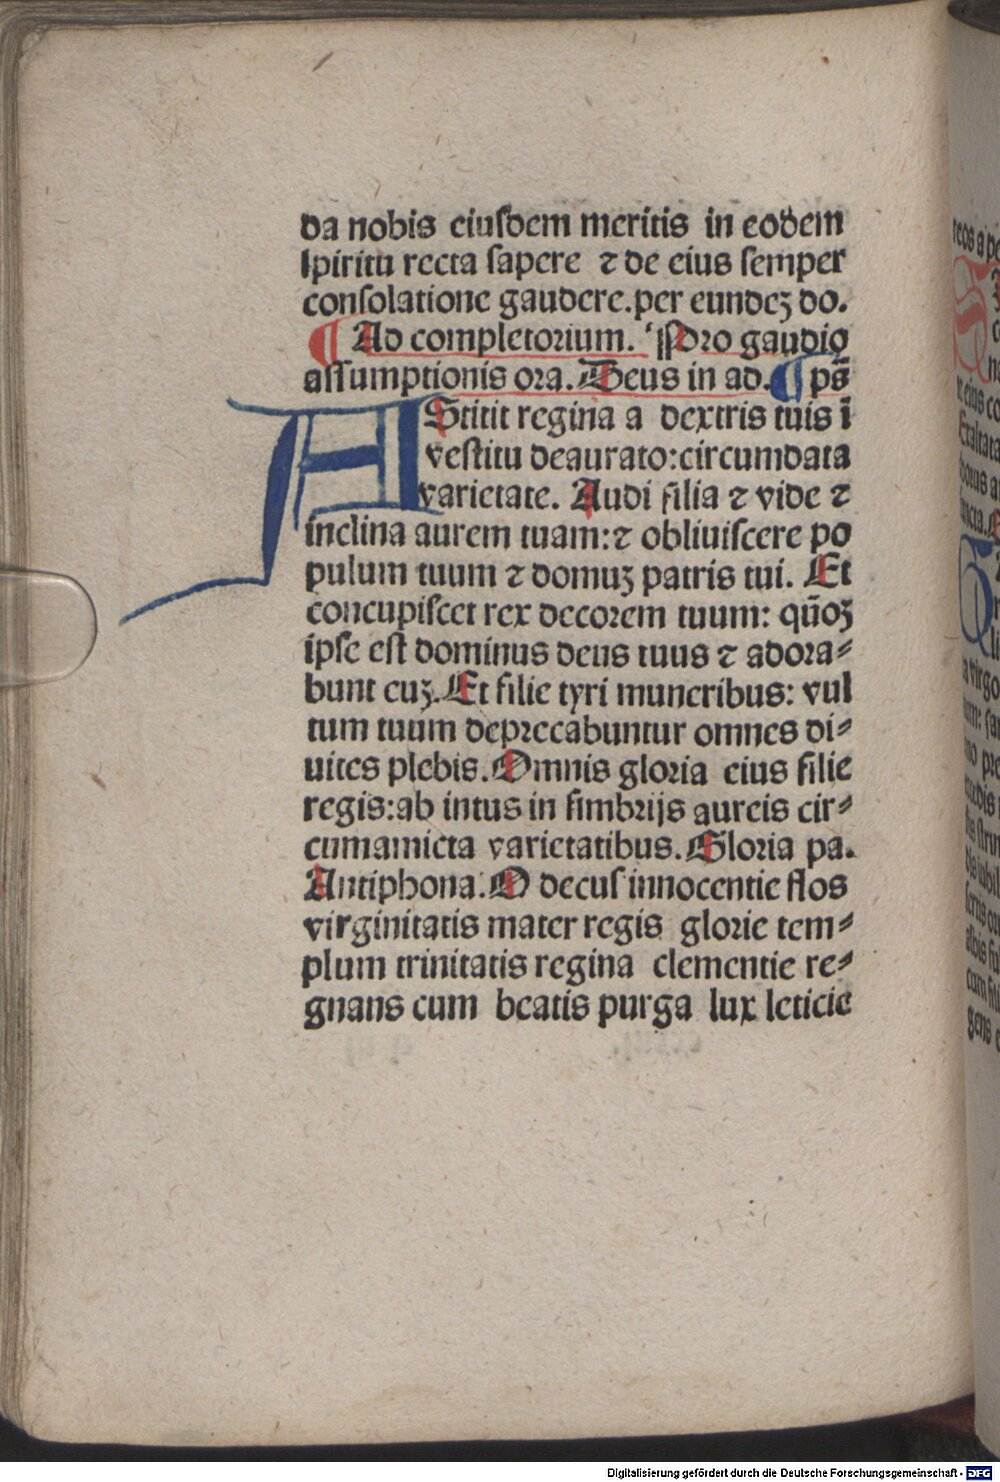 da nobis eiuſdem meritis in eodem
ſpiritu recta ſapere ⁊ de eius ſemper
conſolatione gaudere. per eundeʒ do.
¶ Ad completorium. Pro gaudio
aſſumptionis ora. Deus in ad. ¶ ps̄
AStitit regina a dextris tuis ī
veſtitu deaurato: circumdata
varietate. Audi filia ⁊ vide ⁊
inclina aurem tuam: ⁊ obliuiſcere po
pulum tuum ⁊ domuʒ patris tui. Et
concupiſcet rex decorem tuum: qūoʒ
ipſe eſt dominus deus tuus ⁊ adora⸗
bunt euʒ. Et filie tyri muneribus: vul
tum tuum deprecabuntur omnes di⸗
uites plebis. Omnis gloria eius filie
regis: ab intus in fimbrijs aureis cir⸗
cumamicta varietatibus. Gloria pa.
Antiphona. O decuſ innocentie flos
virginitatis mater regis glorie tem⸗
plum trinitatis regina clementie re⸗
gnans cum beatis purga lux leticie
Digitalisierung gefördert durch die Deutsche Forschungsgemeinschaft - DFG